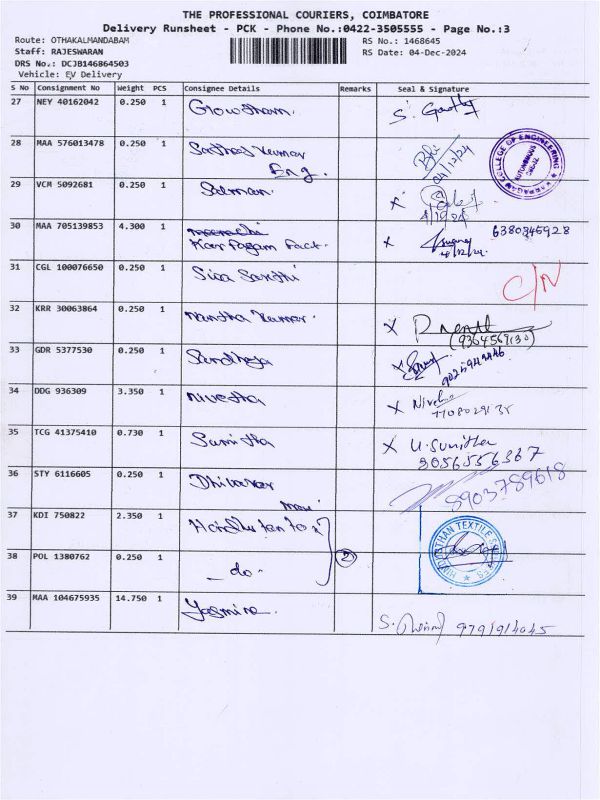 THE PROFESSIONAL COURIERS, COIMBATORE
Delivery Runsheet - PCK - Phone No.:0422-3505555 - Page No.:3
Route: OTHAKALMANDABAM
RS No.: 1468645
Staff: RAJESWARAN
RS Date: 04-Dec-2024
DRS No.: DCJB146864503
Vehicle: EV Delivery
S No Consignment No Weight PCS Consignee Details Remarks Seal & Signature
27 NEY 40162042 0.250 1 Gowtham. S.
28 MAA 576013478 0.250 1 Sathees Kumar
Eng.
COLLEGE OF ENGINEERING
AUTONOMOUS
29 VCM 5092681 0.250 1 Salman. X
30 MAA 705139853 4.300 1 Karpagam Fact. X 6380346928
31 CGL 100076650 0.250 1 Siva Santhi C/N
32 KRR 30063864 0.250 1 Nantha Kumar. X
(9364569130)
33 GDR 5377530 0.250 1 Sandhya X
34 DDG 936309 3.350 1 Nivetha X Nivetha
35 TCG 41375410 0.730 1 Sumitha X U. Sunitha
9056556367
36 STY 6116605 0.250 1 Dhivakar 8903789618
37 KDI 750822 2.350 1
HINDUSTHAN TEXTILE
38 POL 1380762 0.250 1 - do - 2
39 MAA 104675935 14.750 1 Yasmine. S. 9791914045